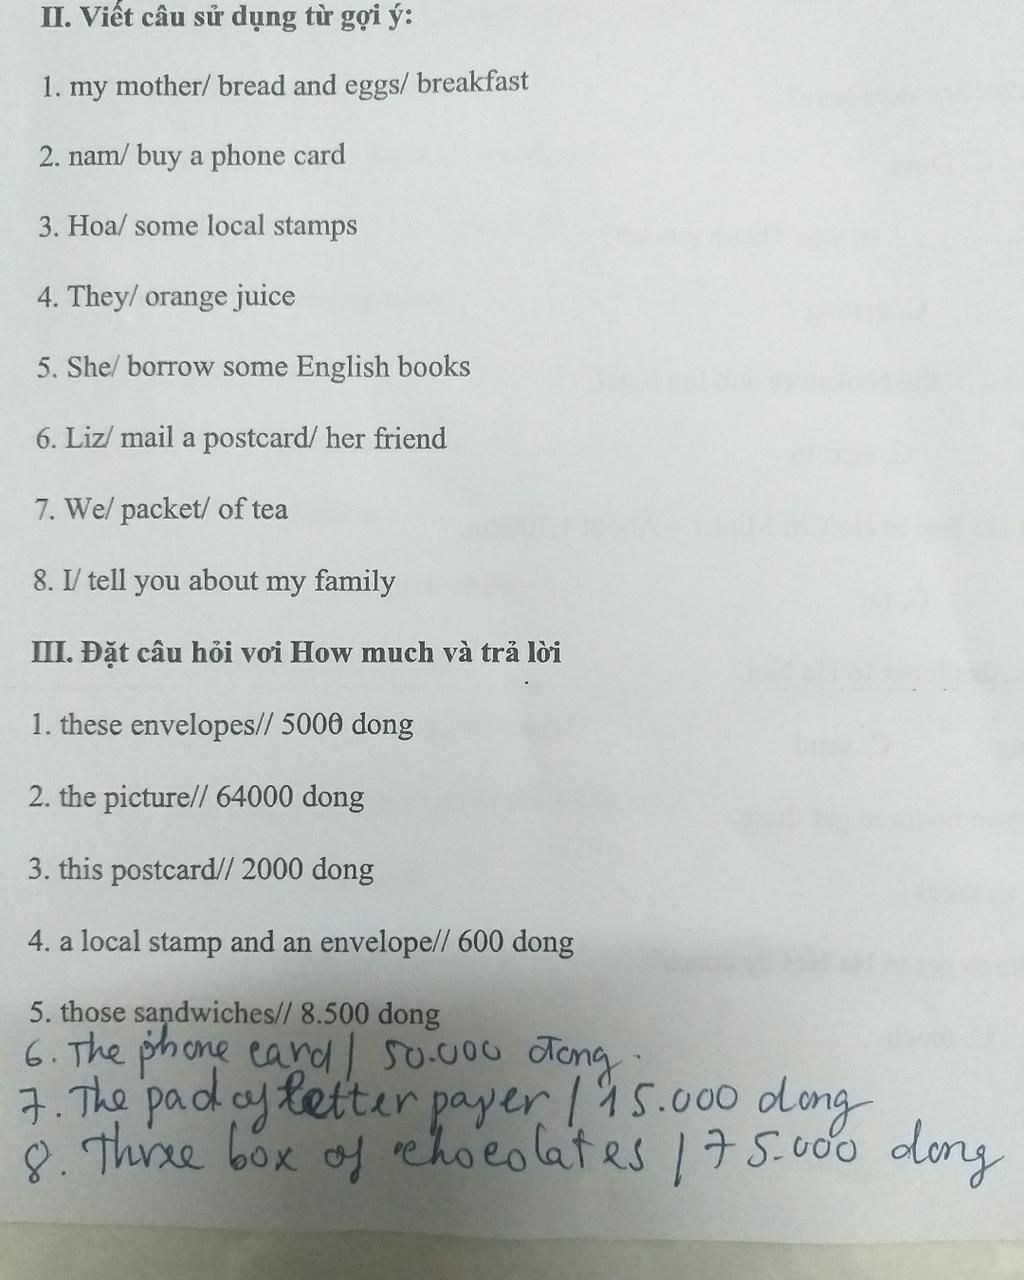 II. Viết câu sử dụng từ gợi ý:
1. my mother/ bread and eggs/ breakfast
2. nam/ buy a phone card
3. Hoa/ some local stamps
4. They/ orange juice
5. She/ borrow some English books
6. Liz/ mail a postcard/ her friend
7. We/ packet/ of tea
8. I/ tell you about my family
III. Đặt câu hỏi vơi How much và trả lời
1. these envelopes// 5000 dong
2. the picture// 64000 dong
3. this postcard// 2000 dong
4. a local stamp and an envelope// 600 dong
5. those sandwiches// 8.500 dong
6. The phone card / 50.000 đong.
7. The pad of letter paper / 15.000 dong
8. Three box of chocolates / 75.000 dong